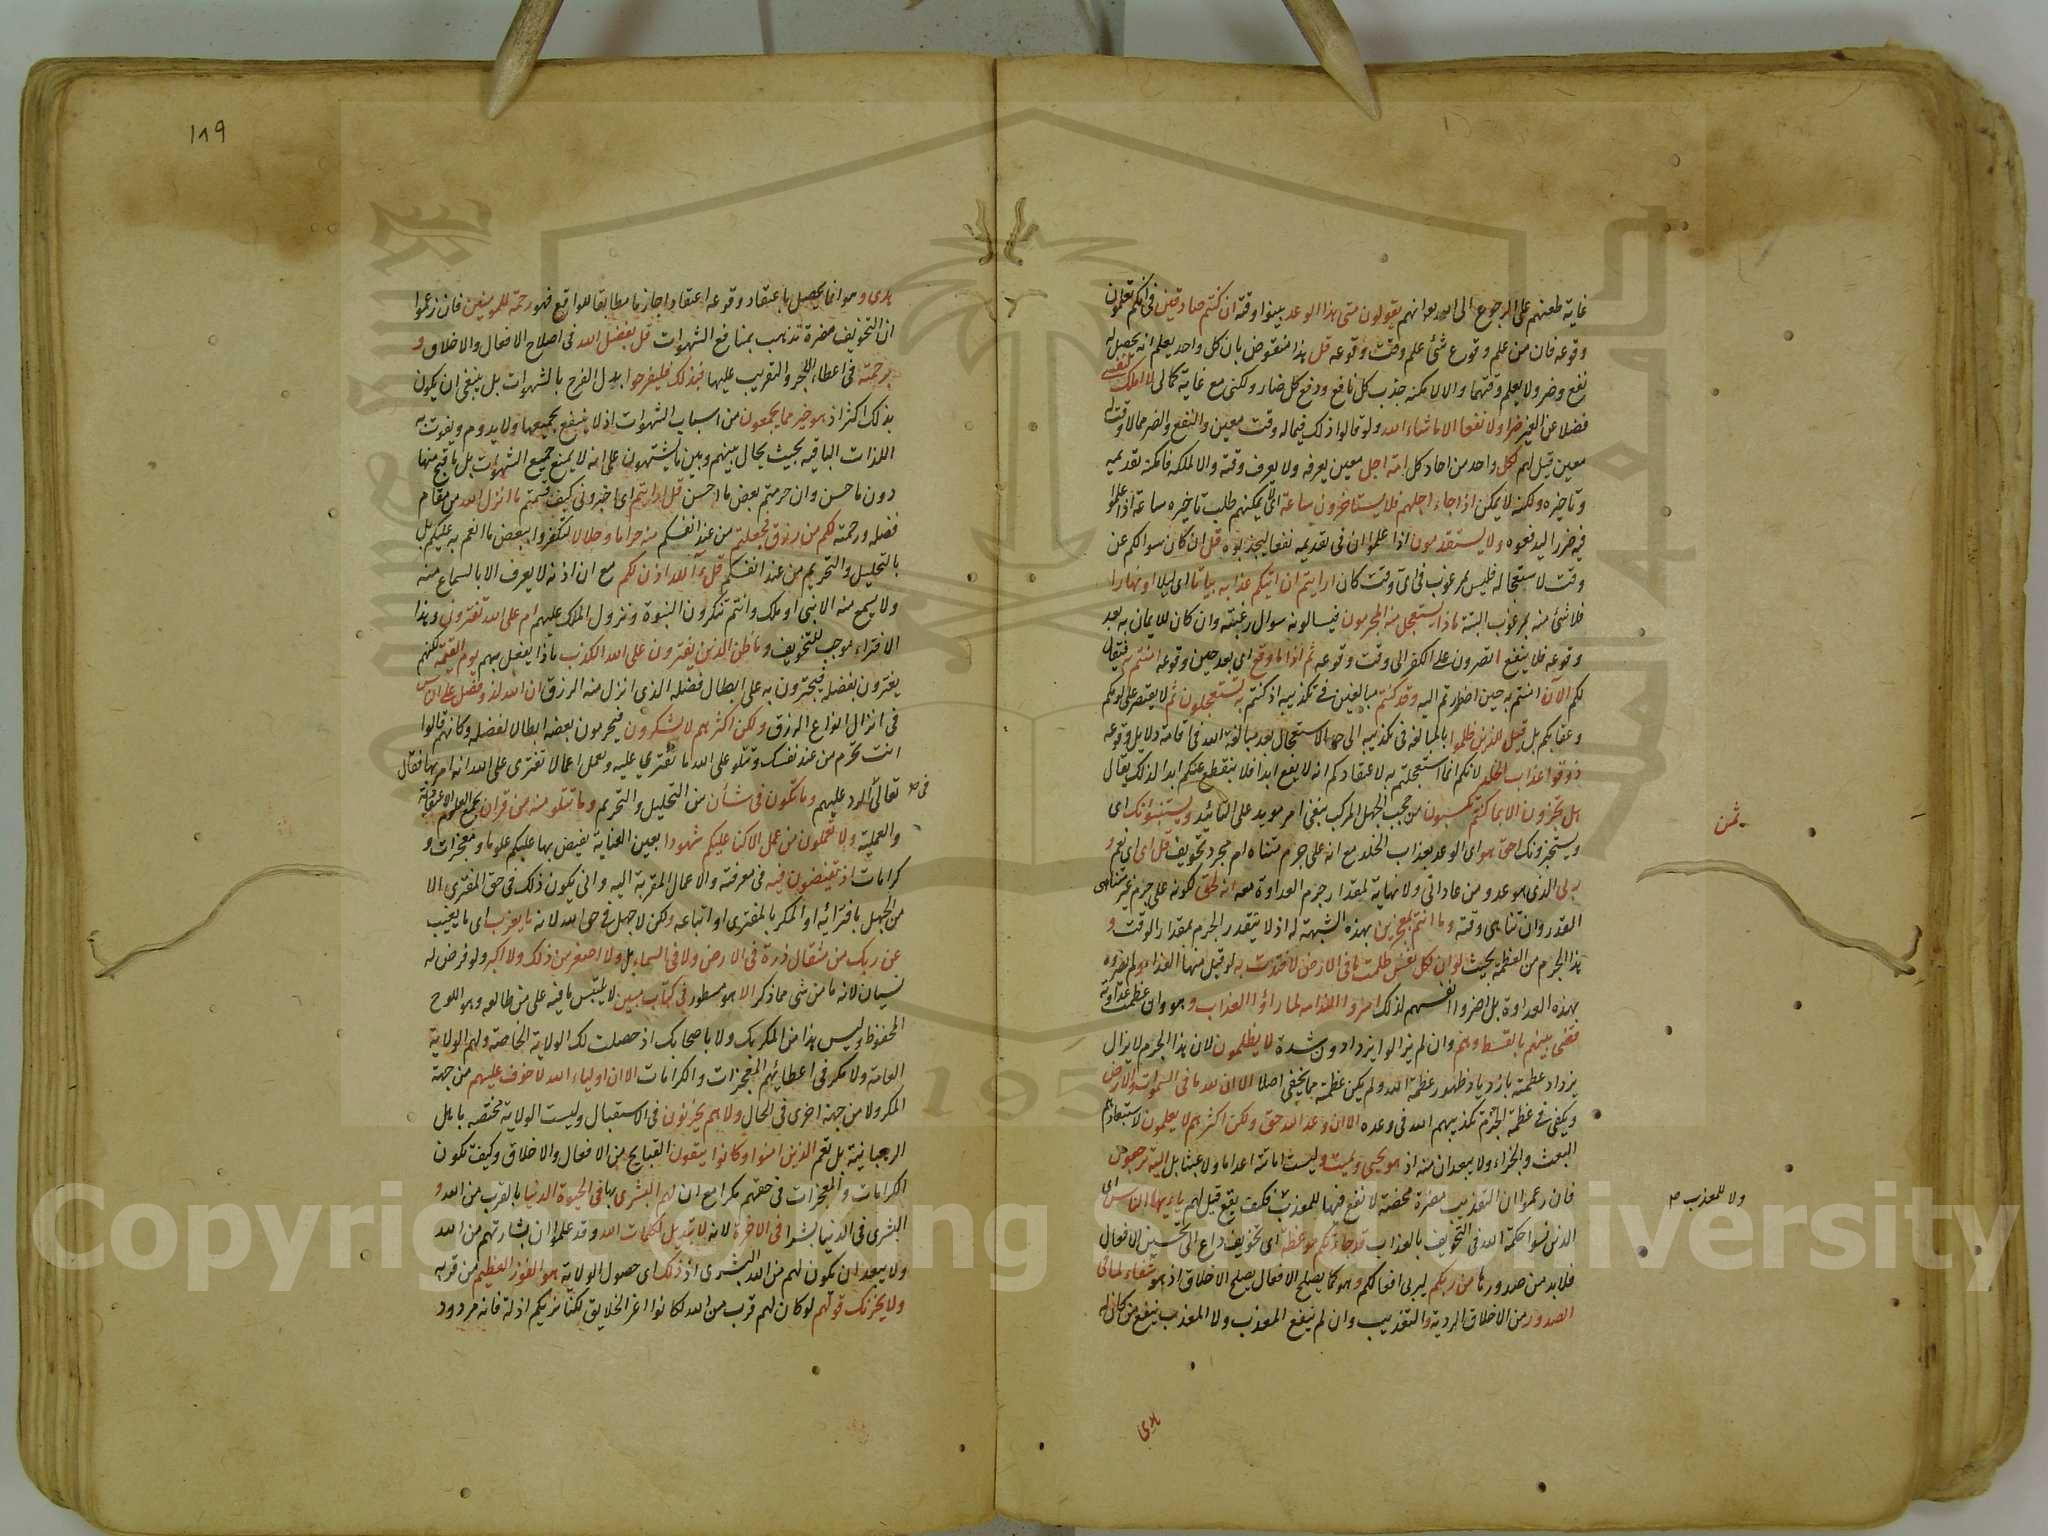 غاية طعنهم على الرجوع الى الله بعد انهم يقولون متى هذا الوعد بينوا وقته ان كنتم صادقين في انكم تعلمون
وقوعه فان من علم وقوع شئ علم وقت وقوعه قل هذا منقوض بان كل واحد يعلم انه يحصل له
نفع وضر ولا يعلم وقتهما والا لامكنه جذب كل نافع ودفع كل ضار ولكني مع غاية كمالى لا املك لنفسى
فضلا عن الغير ضرا ولا نفعا الا ما شاء الله ولو قالوا ذلك فيما له وقت معين والنفع والضر مما لا وقت له
معين قيل لهم لكل واحد من احاد كل امة اجل معين يعرفه ولا يعرف وقته والا لملكه فامكنه تقديمه
وتاخيره ولكنه لا يمكن اذا جاء اجلهم فلا يستاخرون ساعة اى لا يمكنهم طلب تاخيره ساعة اذا علموا
فيه ضررا ليدفعوه ولا يستقدمون اذا علموا ان فى تقديمه نفعا ليجذبوه قل ان كان سؤالكم عن
وقت لاستعجاله فليس بمرغوب فى اى وقت كان ارايتم ان اتيكم عذابه بياتا اى ليلا او نهارا
فلا شئ منه بمرغوب البتة ماذا يستعجل منه المجرمون فيسالونه سوال رغبة وان كان للايمان به بعد
وقوعه فلا ينفع اتصرون على الكفر الى وقت وقوعه ثم اذا ما وقع اى بعد حين وقوعه امنتم به فيقال
لكم الآن امنتم به حين اضطررتم اليه وقد كنتم مبالغين فى تكذيبه اذ كنتم به تستعجلون ثم لا يقتصر على لومكم
وعقابكم بل قيل للذين ظلموا بالمبالغة فى تكذيبه الى حد الاستعجال بعد مبالغة الله فى اقامة دلايل وقوعه
ذوقوا عذاب الخلد لانكم انما استعجلتم به لاعتقادكم انه لا يقع ابدا فلا ينقطع عنكم ابدا لذلك يقال
هل تجزون الا بما كنتم تكسبون من حجب الجهل المركب بنفى امر مويد على التائيد ويستنبئونك اى
ويستخبرونك احق هو اى الوعد بعذاب الخلد مع انه على جرم متناه ام مجرد تخويف قل اى اى نعم و
ربى الذى هو عدو من عاداتى ولا نهاية لمقدار جرم العداوة معه انه لحق لكونه على جرم غير متناهى
القدر وان تناهى وقته وما انتم بمعجزين بهذه الشبهة له اذ لا يتقدر الجرم بمقدار الوقت و
هذا الجرم من العظمة بحيث لو ان لكل نفس ظلمت ما فى الارض لافتدت به لو قبل منها الفداء ولم يضروه
بهذه العداوة بل اضروا انفسهم لذلك اسروا الندامة لما راؤا العذاب و هو وان عظمت عداوته
قضى بينهم بالقسط وهم وان لم يزالوا يزدادون شدة لا يظلمون لان هذا الجرم لا يزال
يزداد عظمته بازدياد ظهور عظمة الله ولم يكن عظمته مما يخفى اصلا الا ان لله ما فى السموات والارض
ويكفى فى عظمة الجرم تكذيبهم الله فى وعده الا ان وعد الله حق ولكن اكثرهم لا يعلمون لاستبعادهم
البعث والجزاء ولا يبعدان منه اذ هو يحيى ويميت وليست اماتته اعداما ولا عبثا بل اليه ترجعون
فان زعموا ان التعذيب مضرة محضة لا نفع فيها للمعذب فكيف يقع قيل لهم ياءيها الناس اى
الذين نسوا حكمة الله فى التخويف بالعذاب قد جاءتكم موعظة اى تخويف داع الى تحسين الافعال
فلا بد من صدورها من ربكم ليربى افعالكم وهو كما يصلح الافعال يصلح الاخلاق اذ هو شفاء لما فى
الصدور من الاخلاق الردية والتعذيب وان لم ينفع المعذب ولا المعذب ينفع من كان له
ثمن
ولا للمعذب صح
هدى
١٨٩
هدى وهو انما يحصل باعتقاد وقوعه اعتقادا جازما مطابقا للواقع فهو رحمة للمومنين فان زعموا
ان التخويف مضرة تذهب بمنافع الشهوات قل بفضل الله فى اصلاح الافعال والاخلاق و
برحمته فى اعطاء الاجر والتقريب عليها فبذلك فليفرحوا بدل الفرح بالشهوات بل ينبغى ان يكون
بذلك اكثر اذ هو خير مما يجمعون من اسباب الشهوات اذ لا ينتفع بجميعها ولا يدوم ويفوت به
اللذات الباقية بحيث يحال بينهم وبين ما يشتهون على انه لا يمنع جميع الشهوات بل ما قبح منها
دون ما حسن وان حرمتم بعض ما احسن قل ارايتم اى اخبرونى كيف قسمتم ما انزل الله من مقام
فضله ورحمته لكم من رزق فجعلتم من عند انفسكم منه حراما وحلالا لتكفروا ببعض ما انعم به عليكم بل
بالتحليل والتحريم من عند انفسكم قل ءآلله اذن لكم مع ان اذنه لا يعرف الا بالسماع منه
ولا يسمع منه الا نبى او ملك وانتم تنكرون النبوة ونزول الملك عليهم ام على الله تفترون وهذا
الافتراء موجب للتخويف وما ظن الذين يفترون على الله الكذب ماذا يفعل بهم يوم القيمة لكنهم
يغترون بفضله فيجترون به على ابطال فضله الذى انزل منه الرزق ان الله لذو فضل على الناس
فى انزال انواع الرزق ولكن اكثرهم لا يشكرون فيحرمون بعضه ابطالا لفضله وكانهم قالوا
انت تحرم من عند نفسك وتتلو على الله ما تفتري عليه وتعمل اعمالا تفترى على الله انه امر بها فقال
تعالى للرد عليهم وما تكون فى شأن من التحليل والتحريم وما تتلو منه من قران يجمع العلوم الاعتقادية
والعملية ولا تعملون من عمل الا كنا عليكم شهودا بعين العناية نفيض بها عليكم علوما ومعجزات و
كرامات اذ تفيضون فيه فى معرفته والاعمال المقربة اليه وانى يكون ذلك فى حق المفترى الا
من الجهل بافترائه او المكر بالمفترى او اتباعه ولكن لا جهل فى حق الله لانه ما يعزب اى ما يغيب
عن ربك من مثقال ذرة فى الارض ولا فى السماء بل ولا اصغر من ذلك ولا اكبر ولو فرض له
نسيان لانه ما من شى مما ذكر الا هو مسطور فى كتاب مبين لا يلتبس ما فيه على من طالعه وهو اللوح
المحفوظ وليس هذا من المكر بك ولا باصحابك اذ حصلت لك الولاية الخاصة ولهم الولاية
العامة ولا مكر فى اعطائهم المعجزات والكرامات الا ان اولياء الله لا خوف عليهم من جهة
المكر ولا من جهة اخرى فى الحال ولا هم يحزنون فى الاستقبال وليست الولاية مختصة باهل
الرهبانية بل تعم الذين امنوا وكانوا يتقون القبايح من الافعال والاخلاق وكيف تكون
الكرامات والمعجزات فى حقهم مكرا مع ان لهم البشرى بها فى الحيوة الدنيا بالقرب من الله و
البشرى فى الدنيا بشرا فى الاخرة لانه لا تبديل لكلمات الله وقد علموا ان بشارتهم من الله
ولا يبعد ان يكون لهم من الله البشرى اذ ذلك اى حصول الولاية هو الفوز العظيم من قربه
ولا يحزنك قولهم لو كان لهم قرب من الله لكانوا اعز الخلايق لكنا نريكم اذلة فانه مردود
Copyright © King Saud University
1957